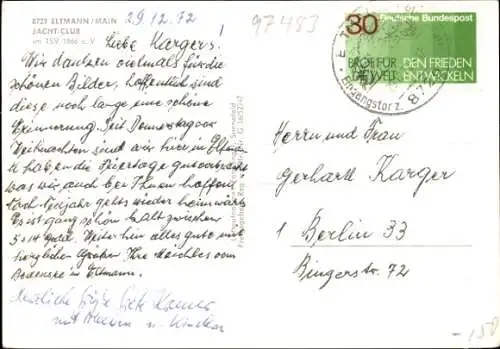 8729 ELTMANN/MAIN
YACHT-CLUB
im TSV 1866 e. V.
29.12.72
97483
Liebe Kargers!
Wir danken vielmals für die
schönen Bilder, hoffentlich sind
diese noch lange eine schöne
Erinnerung. Seit Donnerstag vor
Weihnachten sind wir hier in
haben die Feiertage gut verbracht
was wir auch bei Ihnen hoffen
Nach Neujahr gehts wieder heimwärts
Es ist ganz schön kalt zwischen
5 + 14 grad. Weiter hin alles gute mit
herzlichen Grüßen Ihre vom
Bodensee in Eltmann.
Herzliche Grüße
mit u. Kinder
30 Deutsche Bundespost
BROT FÜR DIE WELT
DEN FRIEDEN ENTWICKELN
Herrn und Frau
Gerhard Karger
1 Berlin 33
Bingerstr. 72
-150